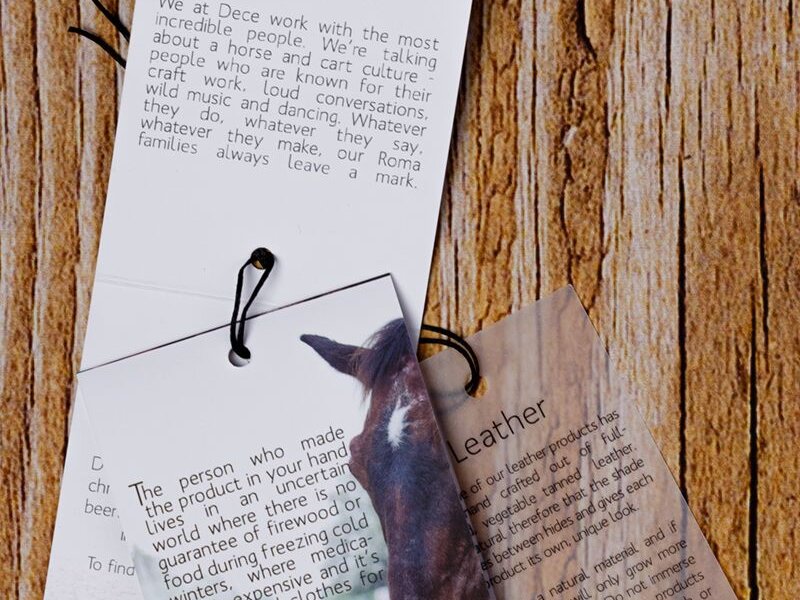 We at Dece work with the most
incredible people. We're talking
about a horse and cart culture -
people who are known for their
craft work, loud conversations,
wild music and dancing. Whatever
they do, whatever they say,
whatever they make, our Roma
families always leave a mark.
The person who made
the product in your hand
lives in an uncertain
world where there is no
guarantee of firewood or
food during freezing cold
winters, where medica-
expensive and it's
clothes for
To find
Leather
of our leather products has
hand crafted out of full-
vegetable tanned leather.
therefore that the shade
between hides and gives each
product its own, unique look.
a natural material and if
will only grow more
do not immerse
products
or